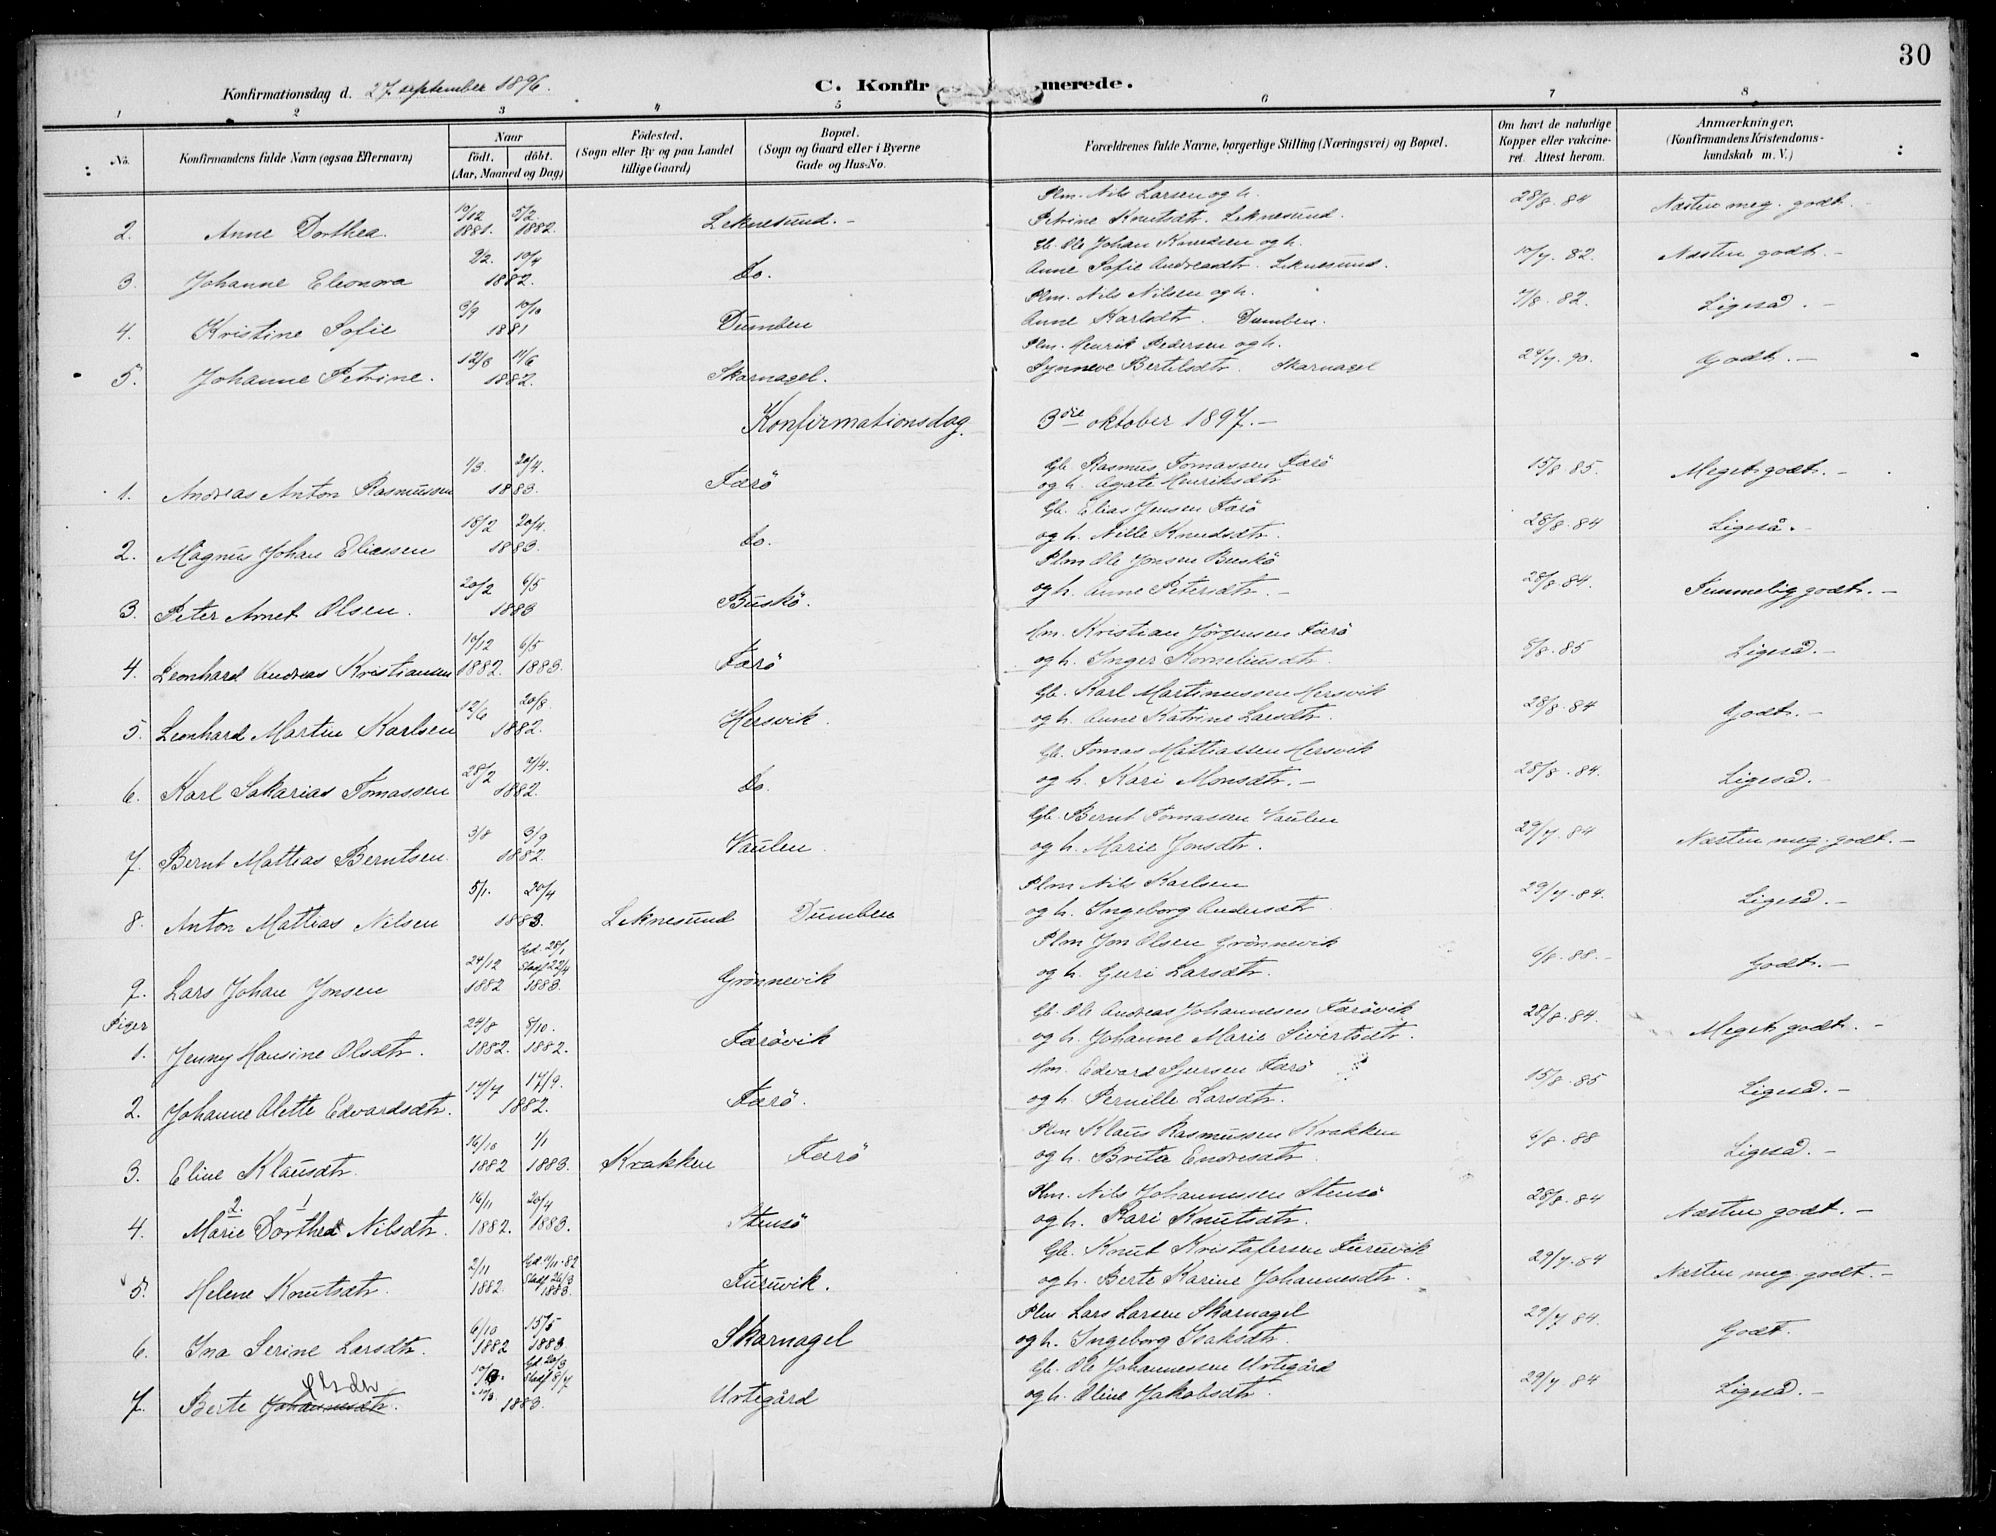 30
Konfirmationsdag d. 27 september 1896.
C. Konfirmerede.
1 2 3 4 5 6 7 8
No.
Konfirmandens fulde Navn (ogsaa Efternavn)
Naar
födt. döbt.
(Aar, Maaned og Dag)
Födested.
(Sogn eller By og paa Landet
tillige Gaard)
Bopæl.
(Sogn og Gaard eller i Byerne
Gade og Hus-No.
Forældrenes fulde Navne, borgerlige Stilling (Næringsvei) og Bopæl.
Om havt de naturlige
Kopper eller vakcine-
ret. Attest herom.
Anmærkninger.
(Konfirmandens Kristendoms-
kundskab m. V.)
2. Anne Dorthea 10/12 1881. 5/2. 1882. Leknesund. -
Plm. Nils Larsen og h.
Petrine Knutsdtr. Leknesund. 28/8. 84 Næsten meg. godt. -
3. Johanne Eleonora 2/2. 10/4 1882. Do.
Gb. Ole Johan Knudsen og h.
Anne Sofie Andreasdtr. Leknesund. 10/7. 82. Næsten godt. -
4. Kristine Sofie 3/9 10/10 1881 Dumben
Plm. Nils Nilsen og h.
Anne Karlsdtr. Dumben. 7/8. 82. Ligeså. -
5. Johanne Petrine. 12/3 11/6 1882. Skarnagel.
Plm. Henrik Pedersen og h.
Synneve Bertelsdtr. Skarnagel 24/7. 90. Godt. -
Konfirmationsdag 3die oktober 1897. -
1. Andreas Anton Rasmussen 1/3. 20/4. 1883. Færö
Gb. Rasmus Tomassen Færö
og h. Agate Henriksdtr 15/8 85. Meget godt. -
2. Magnus Johan Eliassen 18/2 20/4. 1883. Do.
Gb. Elias Jensen Færö
og h. Nille Knudsdtr. 28/8. 84 Ligeså. -
3. Peter Arnet Olsen. 20/2 6/5 1883 Buskö.
Plm Ole Jonsen Buskö
og h. Anne Petersdtr. - 28/8. 84. Temmelig godt. -
4. Leonhard Andreas Kristiansen 10/12 1882. 6/5 1883. Færö
Hm. Kristian Jörgensen Færö
og h. Inger Korneliusdtr. 6/8. 85 Ligeså. -
5. Leonhard Martin Karlsen 12/6 20/8. 1882. Hersvik.
Gb. Karl Martinussen Hersvik
og h. Anne Katrine Larsdtr. 28/8. 84 Godt. -
6. Karl Sakarias Tomassen 28/2 9/4. 1882. Do.
Gb. Tomas Mattiassen Hersvik
og h. Kari Monsdtr. - 28/8. 84. Ligeså. -
7. Bernt Mattias Berntsen. 3/8 3/9 1882. Vaulen.
Gb. Bernt Tomassen Vaulen
og h. Marie Jonsdtr. 29/7. 84 Næsten meg. godt. -
8. Anton Mattias Nilsen 5/1. 20/4 1883. Leknesund Dumben
Plm Nils Karlsen
og h. Ingeborg Andersdtr 29/7. 84. Ligeså. -
9. Lars Johan Jonsen 24/12 1882 Hd. 28/1 Stadf 22/4 1883. Grönnevik
Plm Jon Olsen Grönnevik
og h. Guri Larsdtr. 6/8. 88. - Godt. -
Piger
1. Jenny Hansine Olsdtr. 24/8 1882. 8/10. 1882. Færövik
Gb. Ole Andreas Johannesen Færövik
og h. Johanne Marie Sivertsdtr. 28/8. 84. Meget godt. -
2. Johanne Olette Edvardsdtr. 14/7 17/9. 1882. Færö.
Hm. Edvard Sjursen Færö
og h. Pernille Larsdtr. 15/8. 85 Ligeså. -
3. Eline Klausdtr. 16/10 1882 1/1 1883. Krakken Færö
Plm Klaus Rasmussen Krakken
og h. Brita Endresdtr. 6/8. 88 Ligeså. -
2. 1
4. Marie Dorthea Nilsdtr. 16/11 1882. 20/4 1883. Stensö
Plm. Nils Johannessen Stensö
og h. Kari Knutsdtr. 28/8. 84 Næsten godt. -
5. Helene Knutsdtr. 2/11 1882. Hd. 11/11. 82 Stadf 26/3 1883. Furuvik.
Gb. Knut Kristofersen Furuvik
og h. Berte Karine Johannesdtr. 29/7. 84 Næsten meg. godt. -
6. Ina Serine Larsdtr. 6/10 1882 15/5 1883 Skarnagel
Plm. Lars Larsen Skarnagel
og h. Ingeborg Isaksdtr. 29/7 84. Godt.
Olsdtr
7. Berte Johannesdtr. 10/3. Hd 20/3 Stadf 8/7 1883. Urtegård
Gb. Ole Johannessen Urtegård
og h. Oline Jakobsdtr. 29/7. 84 Ligeså. -